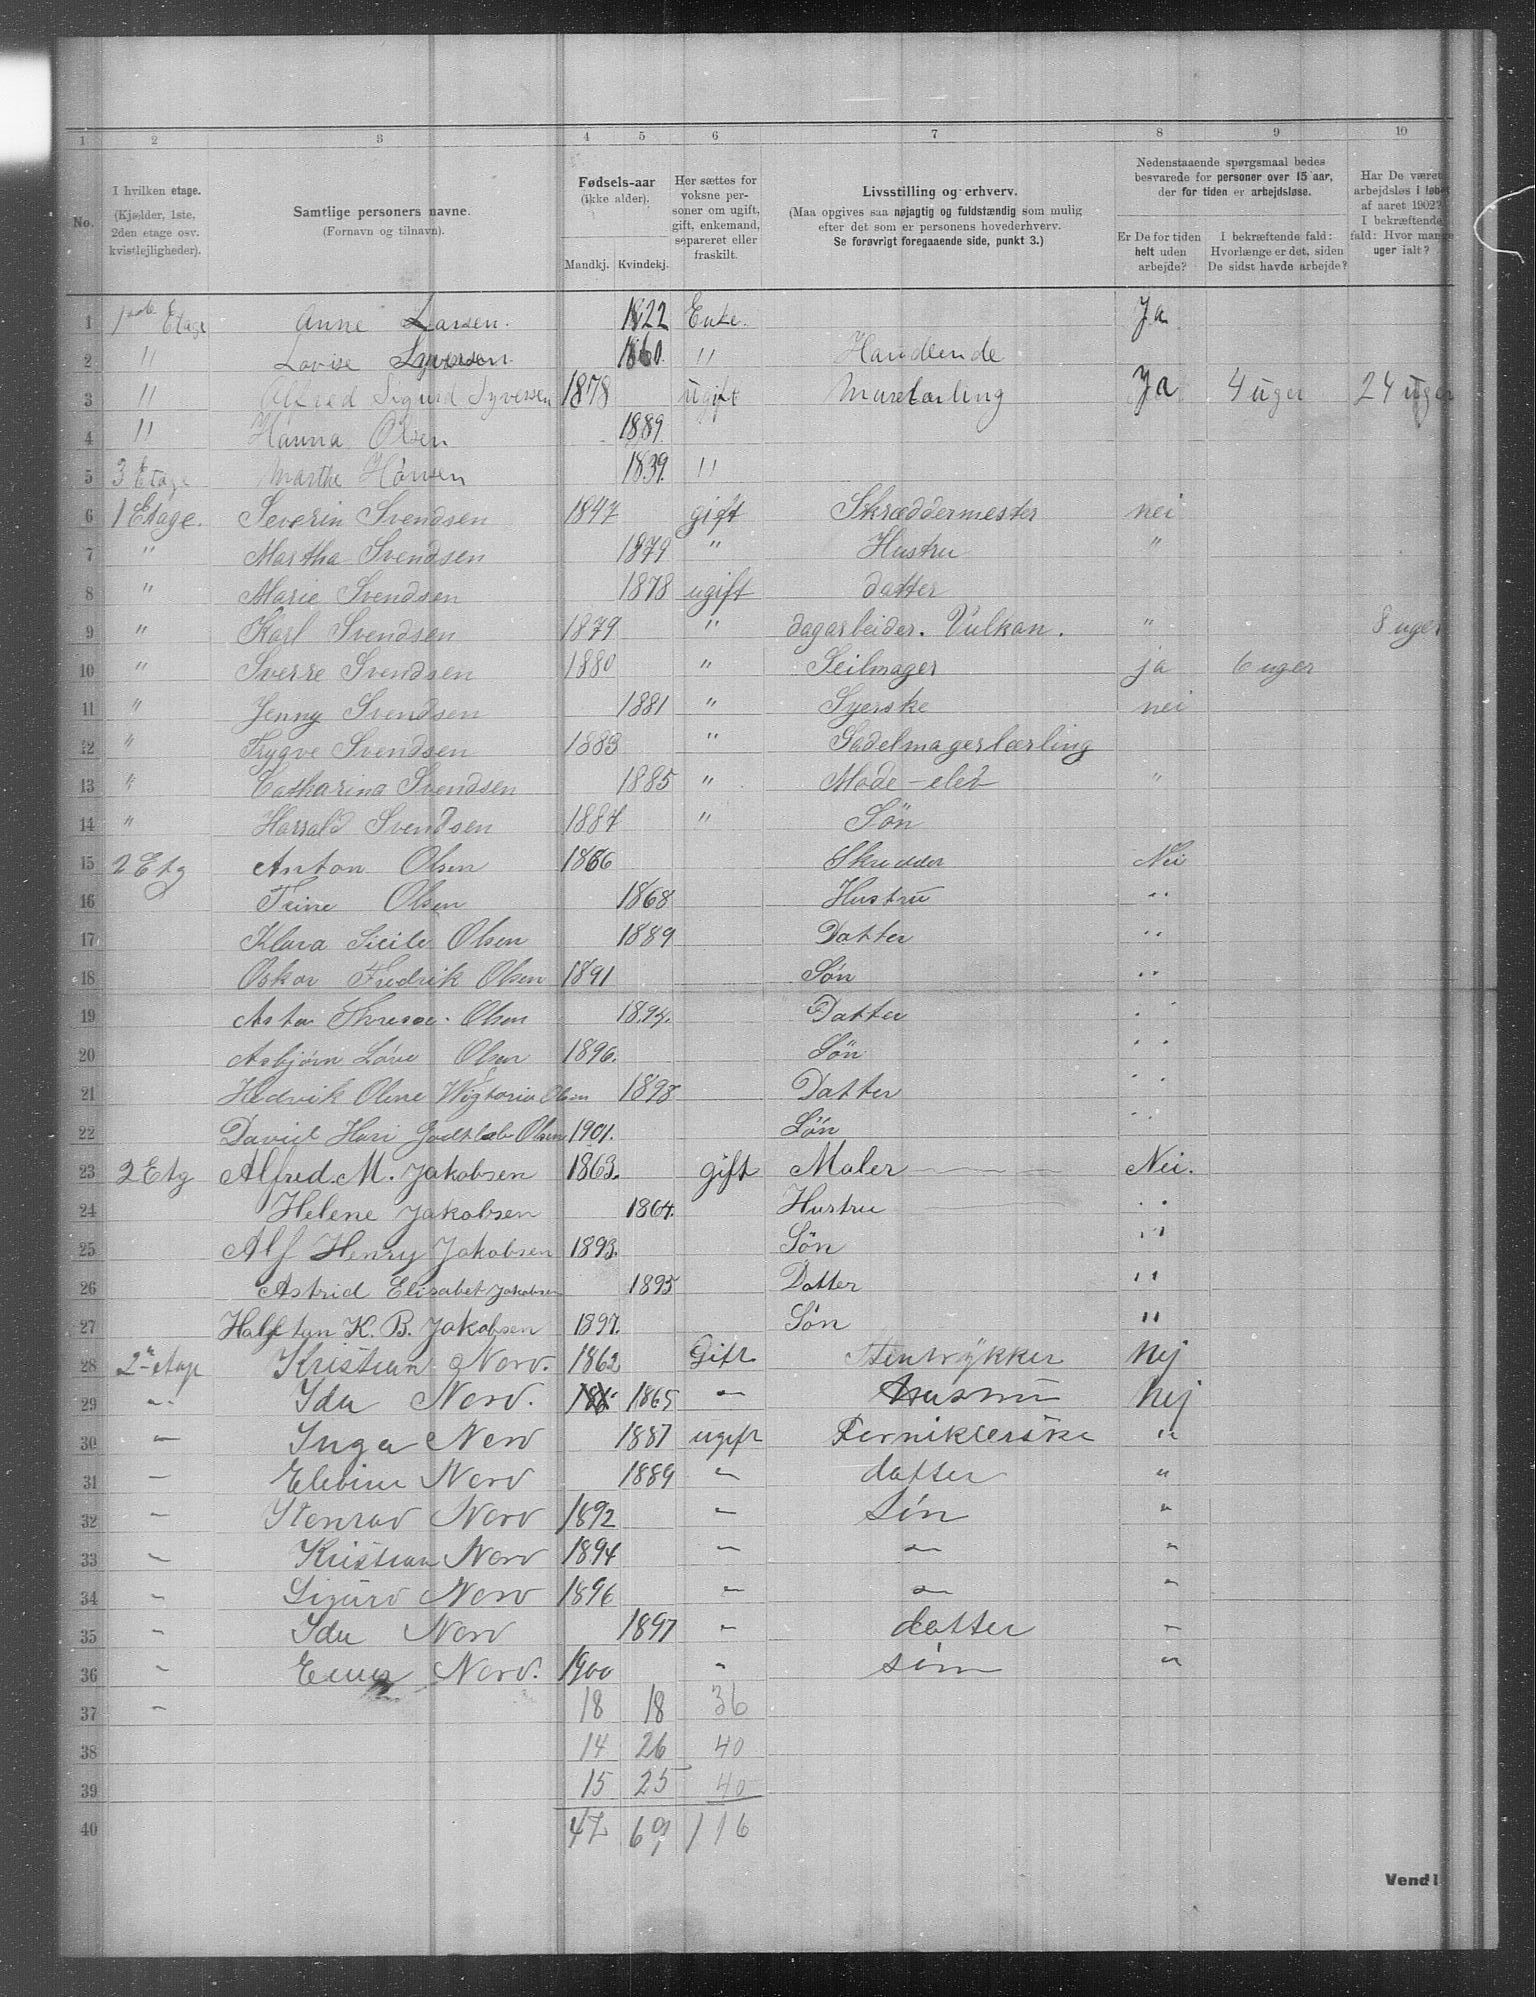 1 2 3 4 5 6 7 8 9 10
No.
I hvilken etage.
(Kjælder, 1ste,
2den etage osv.
kvistlejligheder).
Samtlige personers navne.
(Fornavn og tilnavn).
Fødsels-aar
(ikke alder).
Mandkj. Kvindekj.
Her sættes for
voksne per-
soner om ugift,
gift, enkemand,
separeret eller
fraskilt.
Livsstilling og erhverv.
(Maa opgives saa nøjagtig og fuldstændig som mulig
efter det som er personens hovederhverv.
Se forøvrigt foregaaende side, punkt 3.)
Nedenstaaende spørgsmaal bedes
besvarede for personer over 15 aar,
der for tiden er arbejdsløse.
Er De for tiden
helt uden
arbejde?
I bekræftende fald:
Hvorlænge er det, siden
De sidst havde arbejde?
Har De været
arbejdsløs i løbet
af aaret 1902?
I bekræftende
fald: Hvor mange
uger ialt?
1 Etage Anne Larsen. 1822 Enke. Ja
2 " Lovise 1860. " Handlende
3 " Alfred Sigurd Syversen 1878 ugift Murelærling Ja 4 uger 24 uger
4 " Hanna Olsen 1889.
5 3 Etage Marthe Hansen 1839. "
6 1 Etage. Severin Svendsen 1847 gift Skræddermester nei
7 " Martha Svendsen 1879 " Hustru "
8 " Marie Svendsen 1878 ugift datter
9 " Karl Svendsen 1879 " dagarbeider. Vulkan. " 8 uger
10 " Sverre Svendsen 1880 " Seilmager ja 6 uger
11 " Jenny Svendsen 1881 " Syerske nei
12 " Trygve Svendsen 1883 " Sadelmagerlærling
13 " Catharina Svendsen 1885 " Mode-elev "
14 " Harald Svendsen 1887 " Søn
15 2 Etg Anton Olsen 1866 Skredder Nei
16 Trine Olsen 1868 Hustru "
17 Klara Sicile Olsen 1889 Datter "
18 Oskar Fredrik Olsen 1891 Søn "
19 Asta Olsen 1894. Datter "
20 Asbjørn Olsen 1896. Søn "
21 Hedvik Oline Wigtoria Olsen 1898 Datter "
22 David Hari Godtlab Olsen 1901. Søn "
23 2 Etg Alfred. M. Jakobsen 1863. gift Maler Nei.
24 Helene Jakobsen 1864. Hustru "
25 Alf Henry Jakobsen 1893. Søn "
26 Astrid Elisabet Jakobsen 1895 Datter "
27 Halftan K. B. Jakobsen 1897. Søn "
28 2n etage Kristian Norv. 1862 Gift Stentrykker Nej
29 " Ida Norv. 1865 " Hustru Nej
30 " Inga Norv 1887 ugift Ferniklerske "
31 " Norv 1889 " datter "
32 " Stenrad Norv 1892 " søn "
33 " Kristian Norv 1894 " " "
34 " Sigurd Norv 1896 " " "
35 " Ida Norv 1897 " datter "
36 " Norv. 1900 " søn "
37 " 18 18 36
38 14 26 40
39 15 25 40
40 47 69 116
Vend!